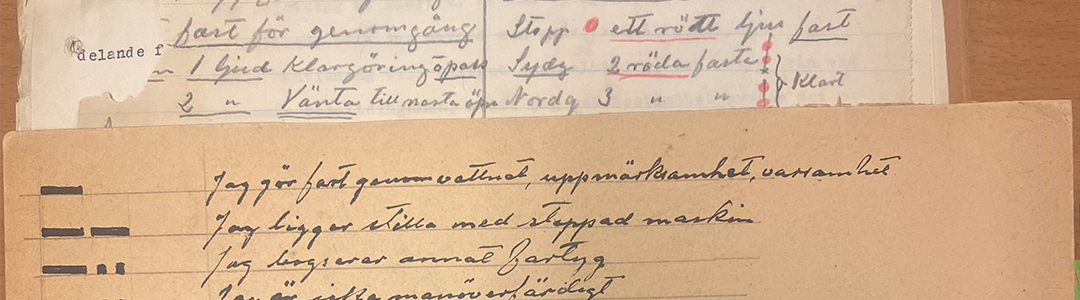 fast för genomgång Stopp ett rött ljus fast
delande f
1 ljud Klargöring Sydg 2 röda fasta
2 " Vänta till nästa Nordg 3 " " Klart
Jag gör fart genom vattnet, uppmärksamhet, varsamhet
Jag ligger stilla med stoppad maskin
Jag bogserar annat fartyg
Jag är icke manöverfärdigt